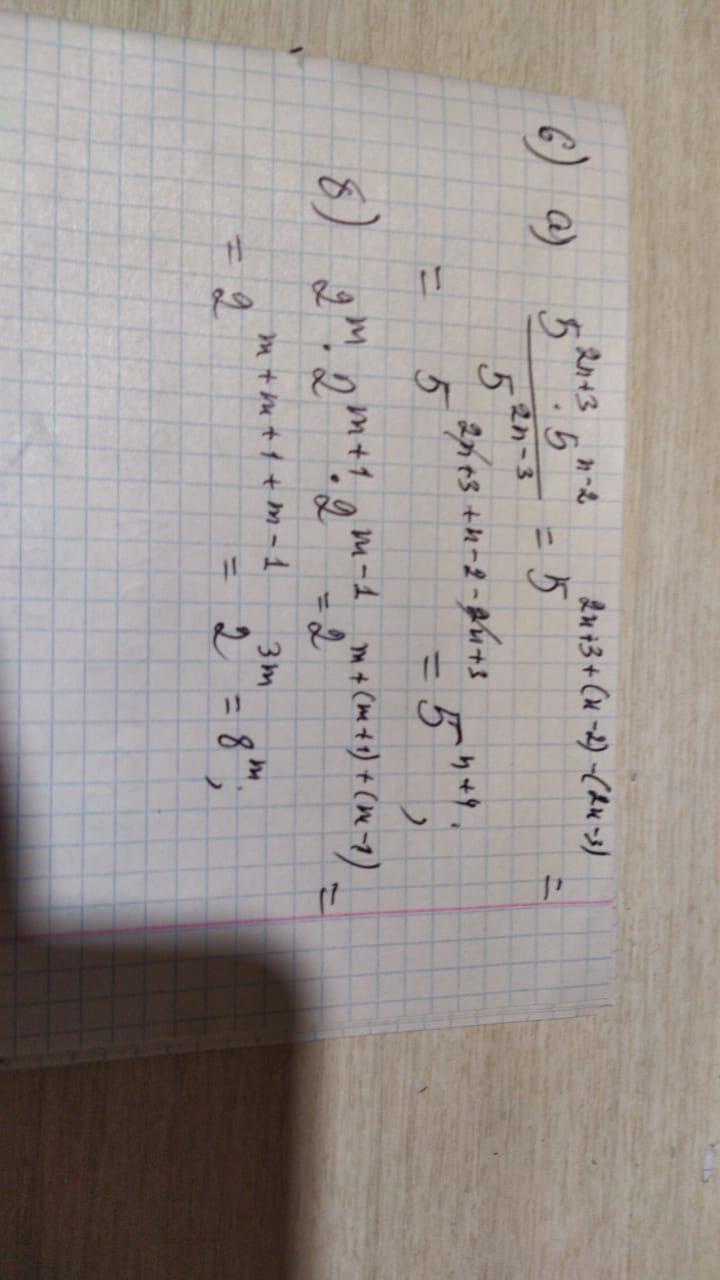 6) а) 5^{2n+3} · 5^{n-2} / 5^{2n-3} = 5^{2n+3+(n-2)-(2n-3)} =
= 5^{2n+3+n-2-2n+3} = 5^{n+4};
б) 2^m · 2^{m+1} · 2^{m-1} = 2^{m+(m+1)+(m-1)} =
= 2^{m+m+1+m-1} = 2^{3m} = 8^m;